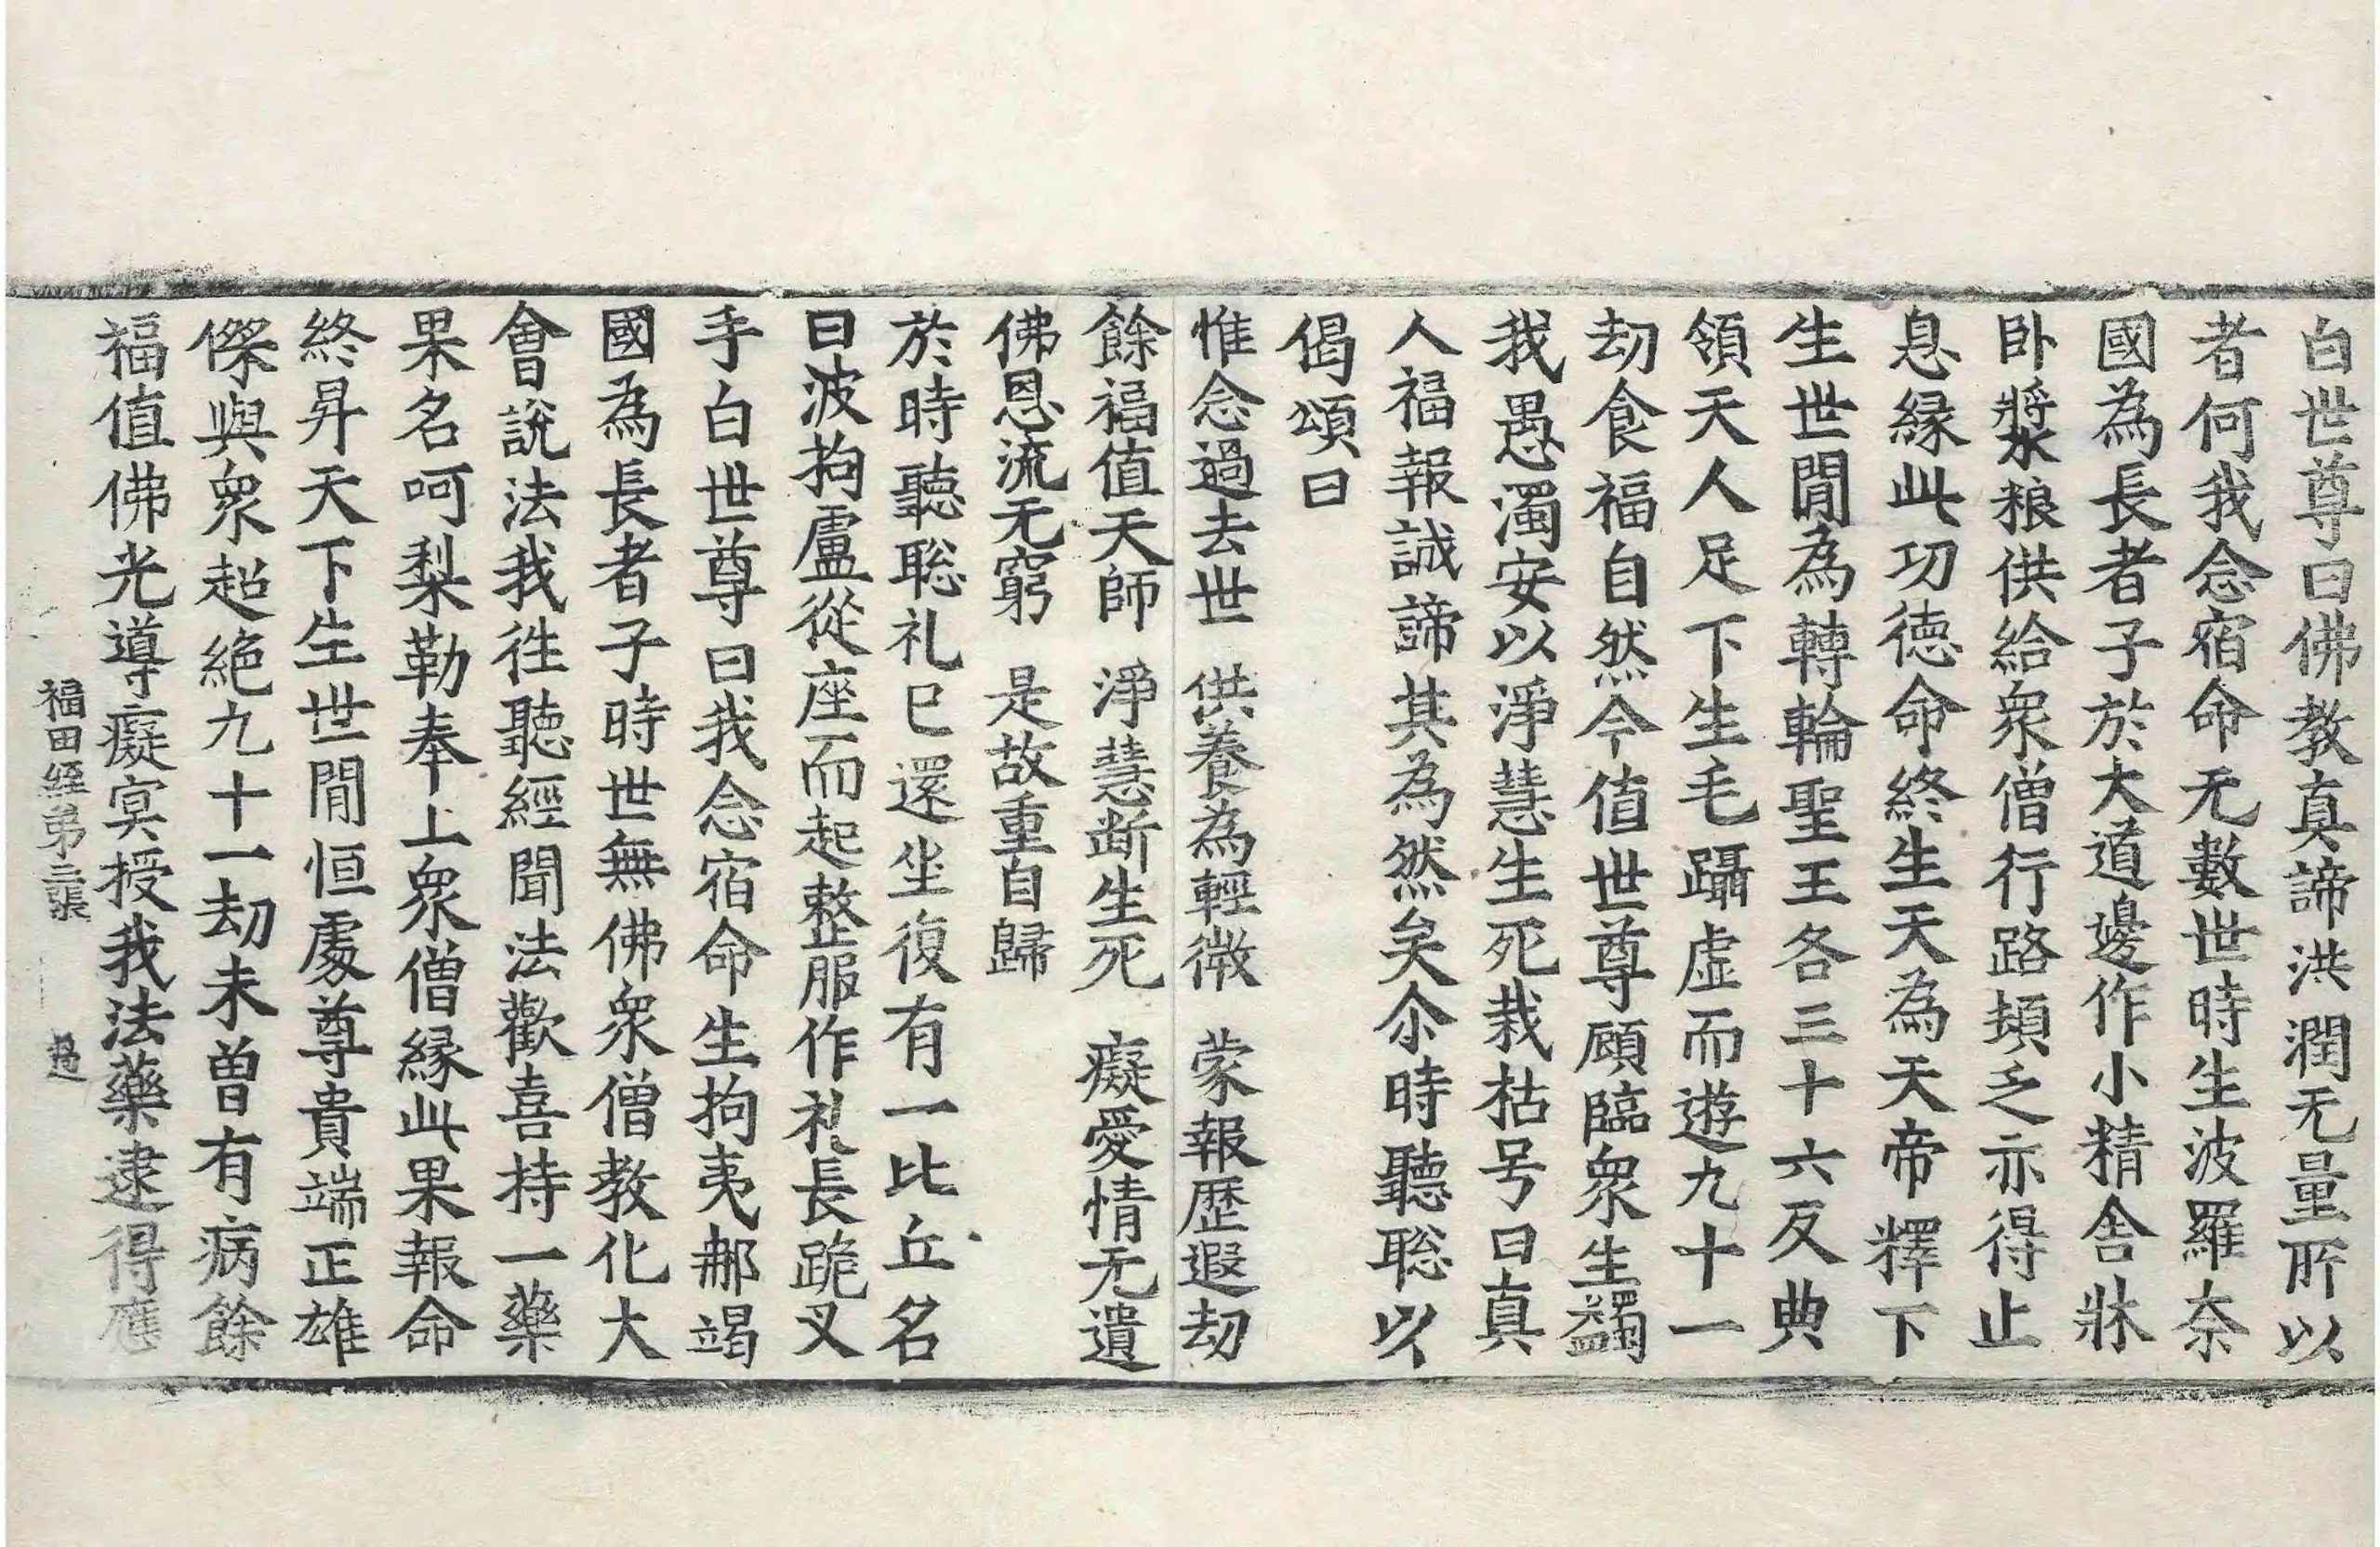 白世尊曰佛教真諦洪潤无量所以
者何我念宿命无數世時生波羅奈
國為長者子於大道邊作小精舍牀
卧漿粮供給衆僧行路頓乏亦得止
息緣此功德命終生天為天帝釋下
生世閒為轉輪聖王各三十六反典
領天人足下生毛躡虛而遊九十一
劫食福自然今值世尊顧臨衆生蠲
我愚濁安以淨慧生死栽枯号曰真
人福報誠諦其為然矣尒時聽聡以
偈頌曰
惟念過去世　供養為輕微　蒙報歷遐劫
餘福值天師　淨慧断生死　癡愛情无遺
佛恩流无窮　是故重自歸
於時聽聡礼已還坐復有一比丘名
曰波拘盧從座而起整服作礼長跪叉
手白世尊曰我念宿命生拘夷郍竭
國為長者子時世無佛衆僧教化大
會說法我徃聽經聞法歡喜持一藥
果名呵梨勒奉上衆僧緣此果報命
終昇天下生世閒恒處尊貴端正雄
傑與衆超絶九十一劫未曾有病餘
福值佛光導癡㝠授我法藥逮得應
福田經第三張